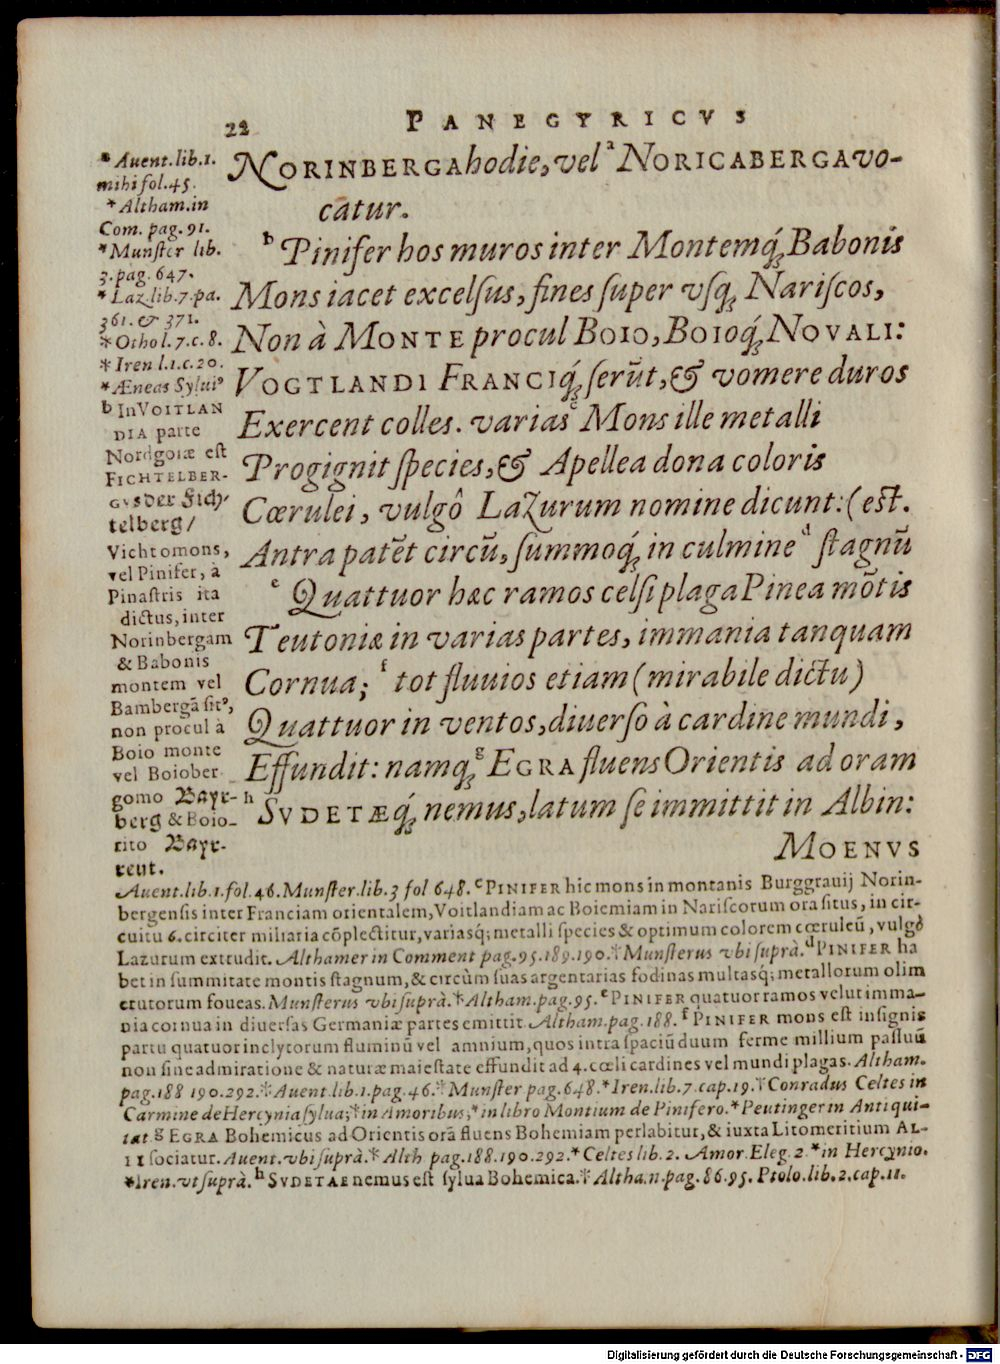 22 PANEGYRICVS
NORINBERGA hodie, vel ᵃ NORICABERGA vo-
catur.
ᵇ Pinifer hos muros inter Montemq́ꝫ Babonis
Mons iacet excelſus, fines ſuper vſqꝫ Nariſcos,
Non à MONTE procul BOIO, BOIOq́ꝫ NOVALI:
VOGTLANDI FRANCIq́ꝫ ferūt, & vomere duros
Exercent colles. varias ᶜ Mons ille metalli
Progignit ſpecies, & Apellea dona coloris
Cœrulei, vulgô LaZurum nomine dicunt: (eſt.
Antra patēt circū, ſummoq́ꝫ in culmine ᵈ ſtagnū
ᵉ Quattuor hæc ramos celſi plaga Pinea mōtis
Teutoniæ in varias partes, immania tanquam
Cornua; ᶠ tot fluuios etiam (mirabile dictu)
Quattuor in ventos, diuerſo à cardine mundi,
Effundit: namqꝫ ᵍ EGRA fluens Orientis ad oram
ʰ SVDETÆq́ꝫ nemus, latum ſe immittit in Albin:
MOENVS
ᵃ Auent. lib. 1.
mihi fol. 45.
* Altham. in
Com. pag. 91.
* Munſter lib.
3. pag. 647.
* Laz. lib. 7. pa.
361. & 371.
* Otho l. 7. c. 8.
* Iren l. 1. c. 20.
* Æneas Syluiꝰ
ᵇ In VOITLAN
DIA parte
Nordgoiæ eſt
FICHTELBER-
GVS der Fich/
telberg/
Vichtomons,
vel Pinifer, à
Pinaſtris ita
dictus, inter
Norinbergam
& Babonis
montem vel
Bambergā ſitꝰ,
non procul à
Boio monte
vel Boiober
gomo Bayr-
berg & Boio-
rito Bayr-
reut.
Auent. lib. 1. fol. 46. Munſter. lib. 3 fol 648. ᶜ PINIFER hic mons in montanis Burggrauij Norin-
bergenſis inter Franciam orientalem, Voitlandiam ac Boiemiam in Nariſcorum ora ſitus, in cir-
cuitu 6. circiter miliaria cōplectitur, variasq; metalli ſpecies & optimum colorem cœruleū, vulgò
Lazurum extrudit. Althamer in Comment pag. 95. 189. 190. * Munſterus vbi ſuprà. ᵈ PINIFER ha
bet in ſummitate montis ſtagnum, & circùm ſuas argentarias fodinas multasq; metallorum olim
erutorum foueas. Munſterus vbi ſuprà. * Altham. pag. 95. ᵉ PINIFER quatuor ramos velut imma-
nia cornua in diuerſas Germaniæ partes emittit. Altham. pag. 188. ᶠ PINIFER mons eſt inſignis
partu quatuor inclytorum fluminū vel amnium, quos intra ſpaciū duum ferme millium paſſuū
non ſine admiratione & naturæ maieſtate effundit ad 4. cœli cardines vel mundi plagas. Altham.
pag. 188 190. 292. * Auent. lib. 1. pag. 46. * Munſter pag. 648. * Iren. lib. 7. cap. 19. * Conradus Celtes in
Carmine de Hercynia ſylua; * in Amoribus, * in libro Montium de Pinifero. * Peutinger in Antiqui-
tat. ᵍ EGRA Bohemicus ad Orientis orā fluens Bohemiam perlabitur, & iuxta Litomeritium AL-
II ſociatur. Auent. vbi ſuprà. * Alth pag. 188. 190. 292. * Celtes lib. 2. Amor. Eleg. 2. * in Hercynio.
* Iren. vt ſuprà. ʰ SVDETAE nemus eſt ſylua Bohemica. * Altha. n. pag. 86. 95. Ptolo. lib. 2. cap. 11.
Digitalisierung gefördert durch die Deutsche Forschungsgemeinschaft - DFG